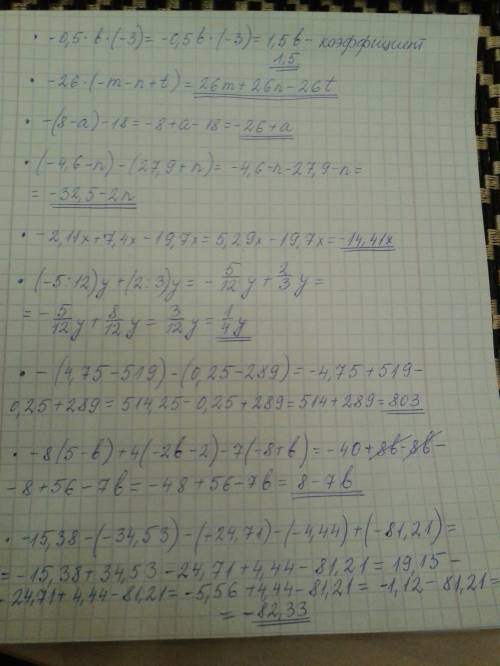 • -0,5·в·(-3)= -0,5в·(-3)= 1,5в - коэффициент
1,5
• -26·(-m-n+t)= 26m+26n-26t
• -(8-a)-18= -8+a-18= -26+a
• (-4,6-n)-(27,9+n)= -4,6-n-27,9-n=
= -32,5-2n
• -2,11x+7,4x-19,7x= 5,29x-19,7x= -14,41x
• (-5:12)y+(2:3)y= -5/12y+2/3y=
= -5/12y+8/12y= 3/12y= 1/4y
• -(4,75-519)-(0,25-289)= -4,75+519-
0,25+289= 514,25-0,25+289= 514+289= 803
• -8(5-в)+4(-2в-2)-7(-8+в)= -40+8в-8в-
-8+56-7в= -48+56-7в= 8-7в
• -15,38-(-34,53)-(+24,71)-(-4,44)+(-81,21)=
= -15,38+34,53-24,71+4,44-81,21= 19,15-
-24,71+4,44-81,21= -5,56+4,44-81,21= -1,12-81,21=
= -82,33